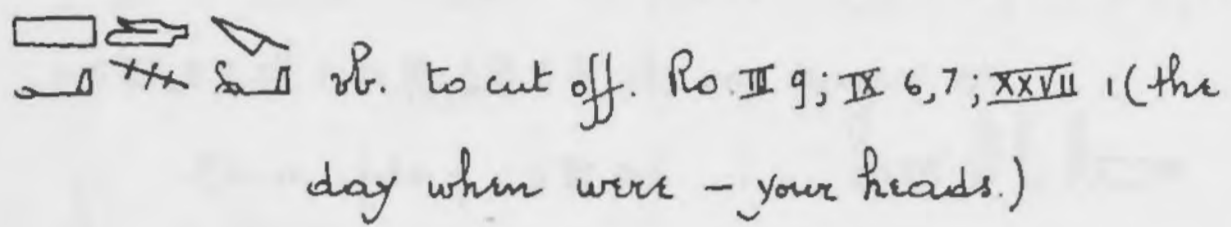 vb. to cut off. Ro. III 9; IX 6,7; XXVII 1 (the
day when were – your heads.)